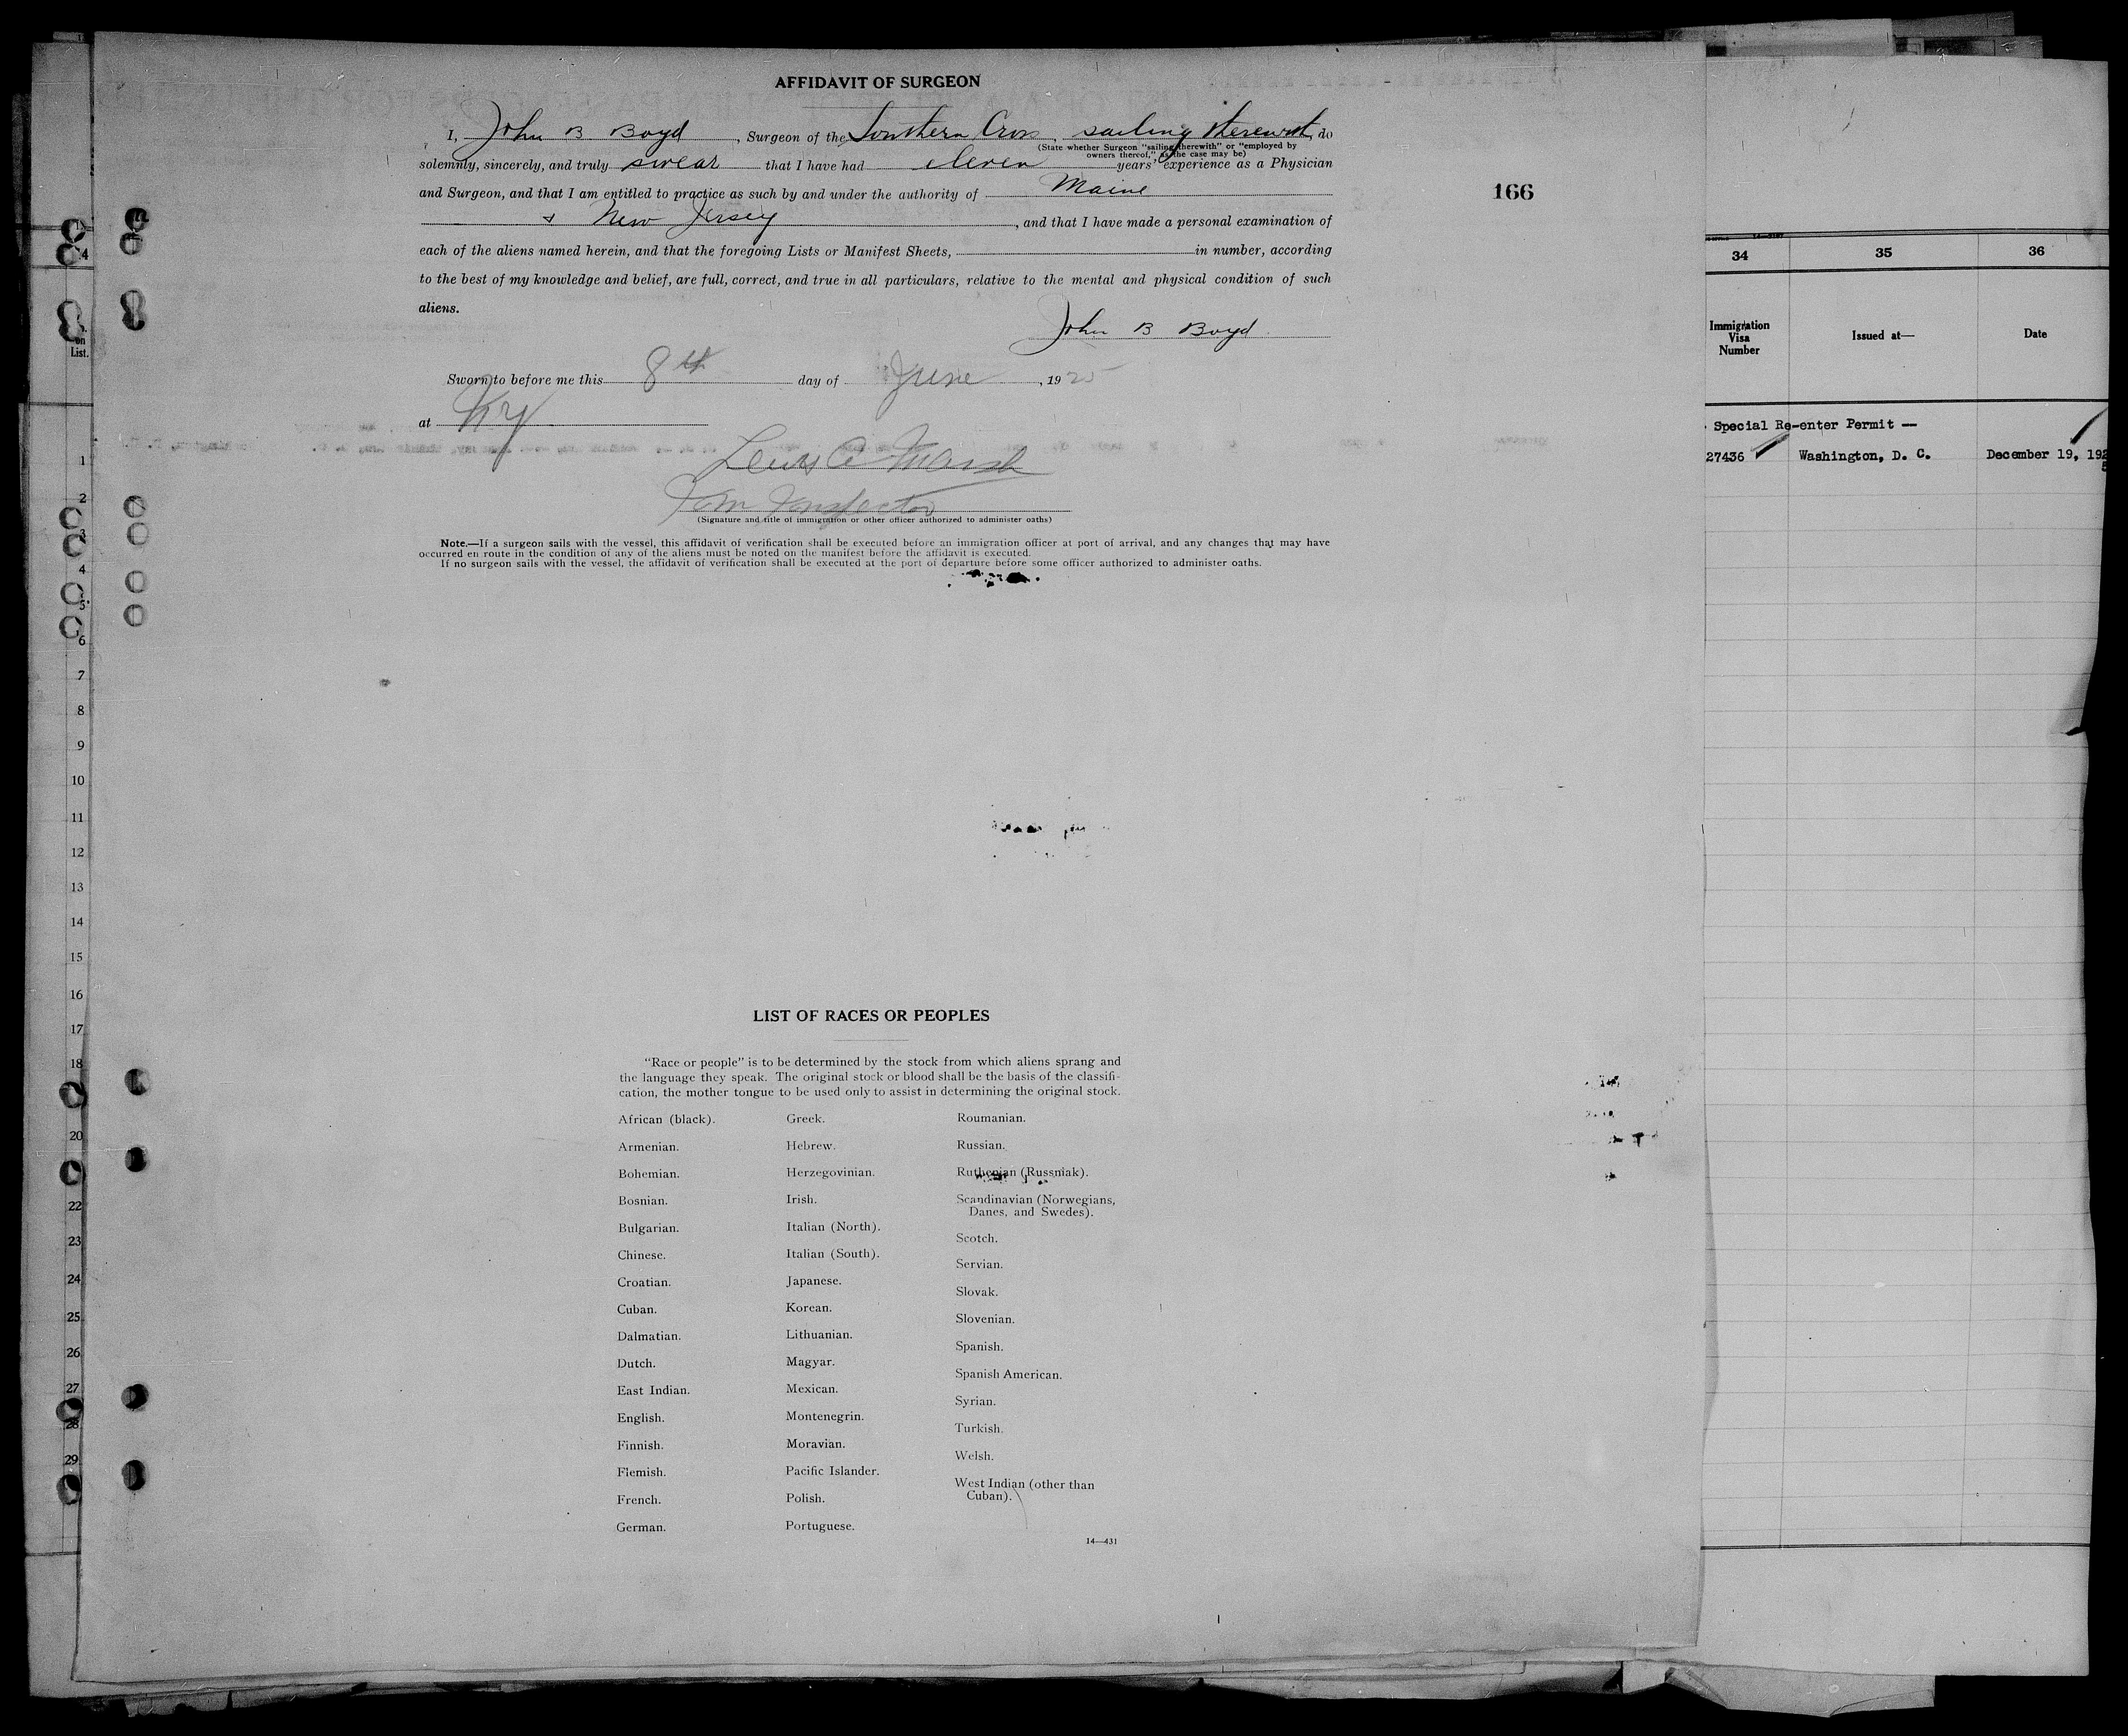 AFFIDAVIT OF SURGEON
I, John B Boyd, Surgeon of the Southern Cross, sailing therewith, do
(State whether Surgeon "sailing therewith" or "employed by
owners thereof," as the case may be)
solemnly, sincerely, and truly swear that I have had eleven years' experience as a Physician
and Surgeon, and that I am entitled to practice as such by and under the authority of Maine
& New Jersey, and that I have made a personal examination of
each of the aliens named herein, and that the foregoing Lists or Manifest Sheets, in number, according
to the best of my knowledge and belief, are full, correct, and true in all particulars, relative to the mental and physical condition of such
aliens.
John B Boyd
Sworn to before me this 8th day of June, 1925
at NY
Lewis A Marsh
Imm Inspector
(Signature and title of immigration or other officer authorized to administer oaths)
Note.—If a surgeon sails with the vessel, this affidavit of verification shall be executed before an immigration officer at port of arrival, and any changes that may have
occurred en route in the condition of any of the aliens must be noted on the manifest before the affidavit is executed.
If no surgeon sails with the vessel, the affidavit of verification shall be executed at the port of departure before some officer authorized to administer oaths.
166
LIST OF RACES OR PEOPLES
"Race or people" is to be determined by the stock from which aliens sprang and
the language they speak. The original stock or blood shall be the basis of the classifi-
cation, the mother tongue to be used only to assist in determining the original stock.
African (black).
Armenian.
Bohemian.
Bosnian.
Bulgarian.
Chinese.
Croatian.
Cuban.
Dalmatian.
Dutch.
East Indian.
English.
Finnish.
Flemish.
French.
German.
Greek.
Hebrew.
Herzegovinian.
Irish.
Italian (North).
Italian (South).
Japanese.
Korean.
Lithuanian.
Magyar.
Mexican.
Montenegrin.
Moravian.
Pacific Islander.
Polish.
Portuguese.
Roumanian.
Russian.
Ruthenian (Russniak).
Scandinavian (Norwegians,
Danes, and Swedes).
Scotch.
Servian.
Slovak.
Slovenian.
Spanish.
Spanish American.
Syrian.
Turkish.
Welsh.
West Indian (other than
Cuban).
14—431
on
List.
1
2
3
4
5
6
7
8
9
10
11
12
13
14
15
16
17
18
20
22
23
24
25
26
27
28
29
34 35 36
Immigration
Visa
Number
Issued at—
Date
Special Re-enter Permit --
27436 Washington, D. C. December 19, 192